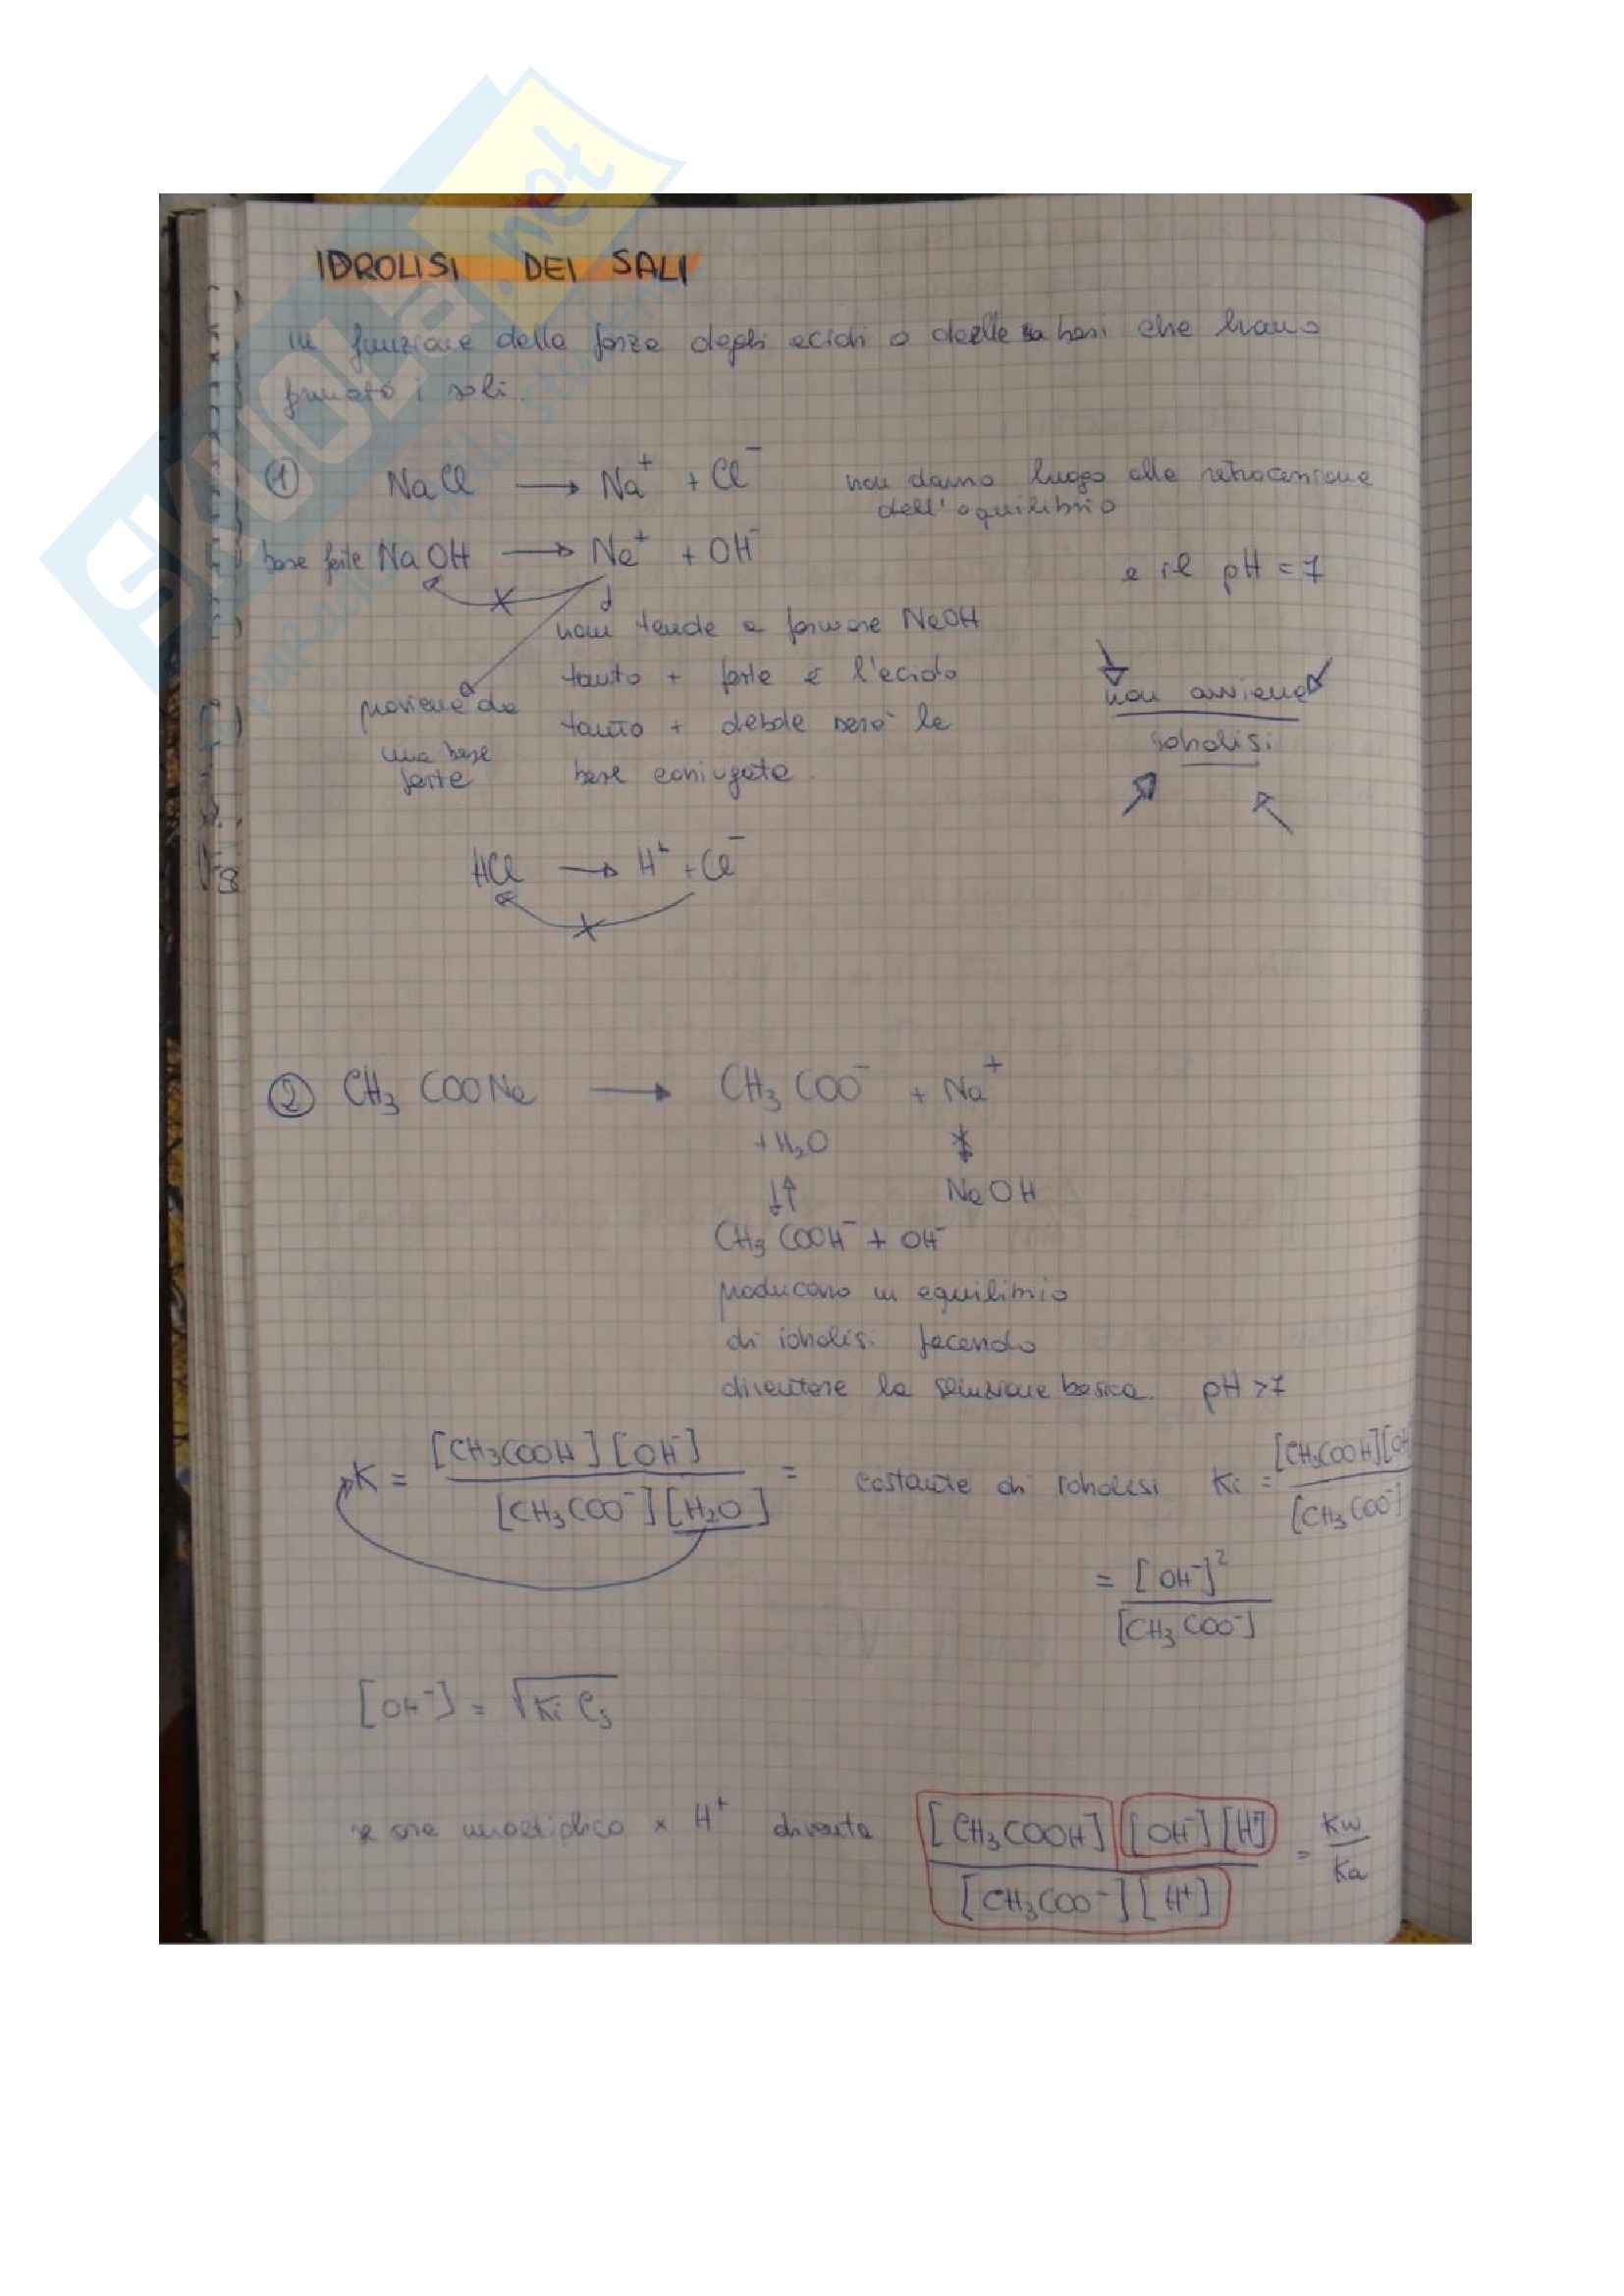 SKUOLa.net
IDROLISI DEI SALI
in funzione della forza degli acidi o delle basi che hanno
formato i sali.
① NaCl → Na⁺ + Cl⁻ non danno luogo alla retrocessione
dell'equilibrio
base forte NaOH → Na⁺ + OH⁻
e il pH = 7
non tende a formare NaOH
tanto + forte è l'acido
proviene da
una base
forte
tanto + debole sarà la
base coniugata.
non avviene
idrolisi
HCl → H⁺ + Cl⁻
② CH₃COONa → CH₃COO⁻ + Na⁺
+ H₂O
NaOH
CH₃COOH⁻ + OH⁻
producono un equilibrio
di idrolisi facendo
diventare la soluzione basica. pH > 7
K = [CH₃COOH][OH⁻] / [CH₃COO⁻][H₂O] = costante di idrolisi Ki = [CH₃COOH][OH / [CH₃COO⁻]
= [OH⁻]² / [CH₃COO⁻]
[OH⁻] = √Ki Cs
se ora moltiplico x H⁺ diventa [CH₃COOH][OH⁻][H⁺] / [CH₃COO⁻][H⁺] = Kw / Ka